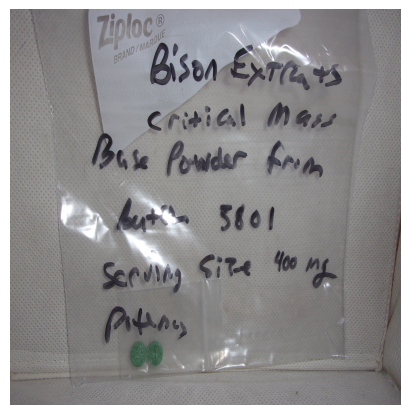 Ziploc®
BRAND / MARQUE
Bison Extracts
critical Mass
Base Powder from
5801
Serving Size 400 mg
Potency